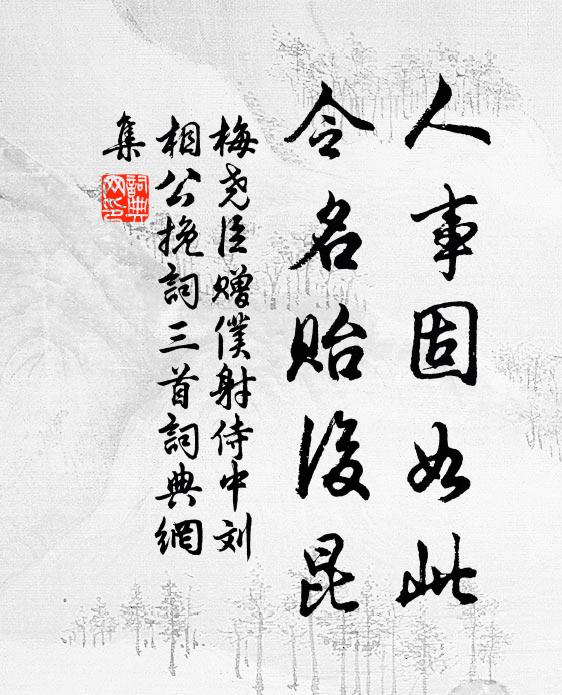 人事固如此
令名貽後昆
梅尧臣赠僕射侍中刘
相公挽詞三首詞典網
集
詞典網印